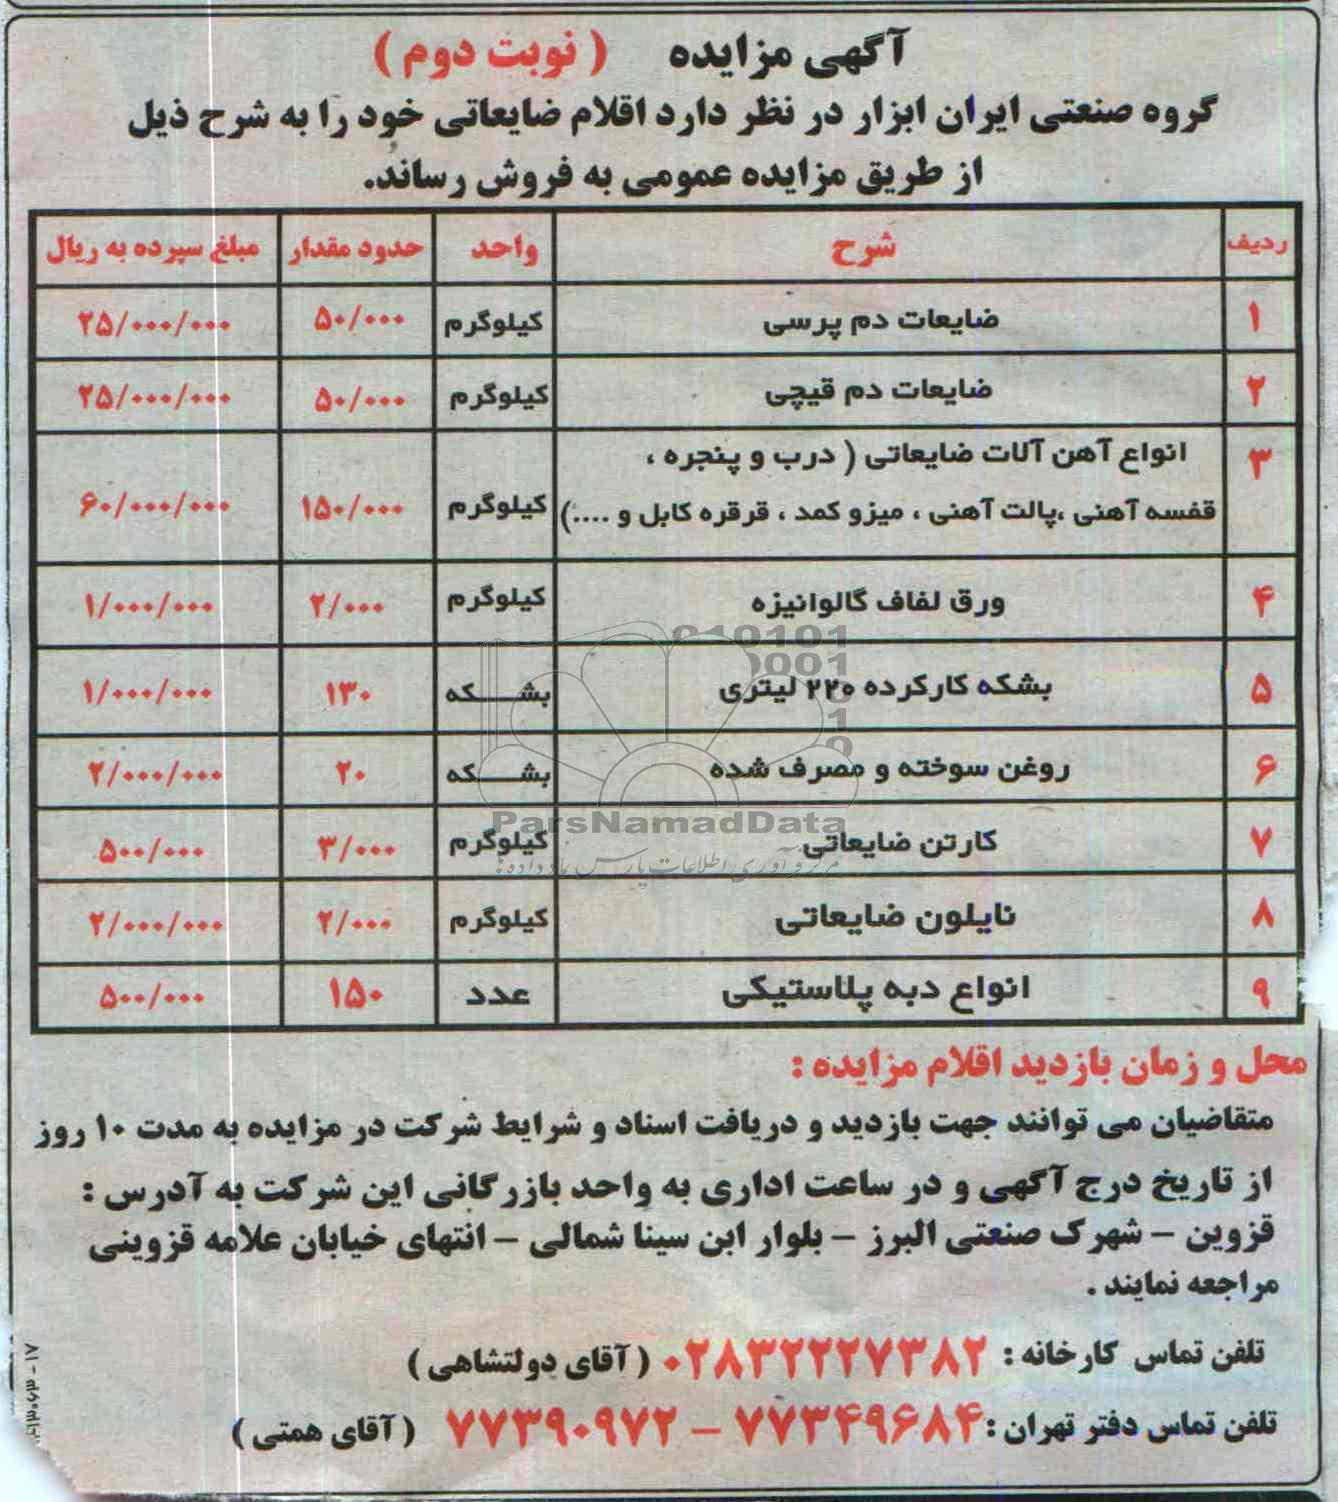 آگهی مزایده ( نوبت دوم )
گروه صنعتی ایران ابزار در نظر دارد اقلام ضایعاتی خود را به شرح ذیل
از طریق مزایده عمومی به فروش رساند.
ردیف شرح واحد حدود مقدار مبلغ سپرده به ریال
۱ ضایعات دم پرسی کیلوگرم ۵۰/۰۰۰ ۲۵/۰۰۰/۰۰۰
۲ ضایعات دم قیچی کیلوگرم ۵۰/۰۰۰ ۲۵/۰۰۰/۰۰۰
۳ انواع آهن آلات ضایعاتی ( درب و پنجره ،
قفسه آهنی ،پالت آهنی ، میزو کمد ، قرقره کابل و ....) کیلوگرم ۱۵۰/۰۰۰ ۶۰/۰۰۰/۰۰۰
۴ ورق لفاف گالوانیزه کیلوگرم ۲/۰۰۰ ۱/۰۰۰/۰۰۰
۵ بشکه کارکرده ۲۲۰ لیتری بشکه ۱۳۰ ۱/۰۰۰/۰۰۰
۶ روغن سوخته و مصرف شده بشکه ۲۰ ۲/۰۰۰/۰۰۰
۷ کارتن ضایعاتی کیلوگرم ۳/۰۰۰ ۵۰۰/۰۰۰
۸ نایلون ضایعاتی کیلوگرم ۲/۰۰۰ ۲/۰۰۰/۰۰۰
۹ انواع دبه پلاستیکی عدد ۱۵۰ ۵۰۰/۰۰۰
ParsNamadData
مرکز فرآوری اطلاعات پارس نماد داده ها
محل و زمان بازدید اقلام مزایده :
متقاضیان می توانند جهت بازدید و دریافت اسناد و شرایط شرکت در مزایده به مدت ۱۰ روز
از تاریخ درج آگهی و در ساعت اداری به واحد بازرگانی این شرکت به آدرس :
قزوین – شهرک صنعتی البرز – بلوار ابن سینا شمالی – انتهای خیابان علامه قزوینی
مراجعه نمایند .
تلفن تماس کارخانه : ۰۲۸۳۲۲۲۷۳۸۲ ( آقای دولتشاهی )
تلفن تماس دفتر تهران : ۷۷۳۴۹۶۸۴ – ۷۷۳۹۰۹۷۲ ( آقای همتی )